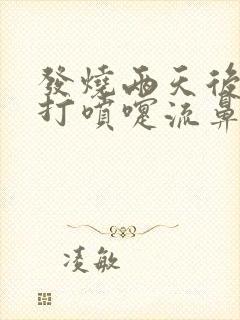 發燒兩天後
打噴嚏流鼻
凌敏